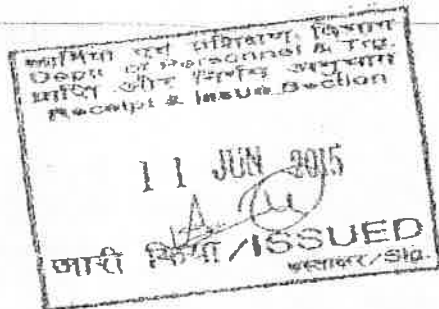 कार्मिक एवं प्रशिक्षण विभाग
Deptt. of Personnel & Trg.
प्राप्ति और निर्गम अनुभाग
Receipt & Issue Section
11 JUN 2015
जारी किया /ISSUED
हस्ताक्षर/Sig.